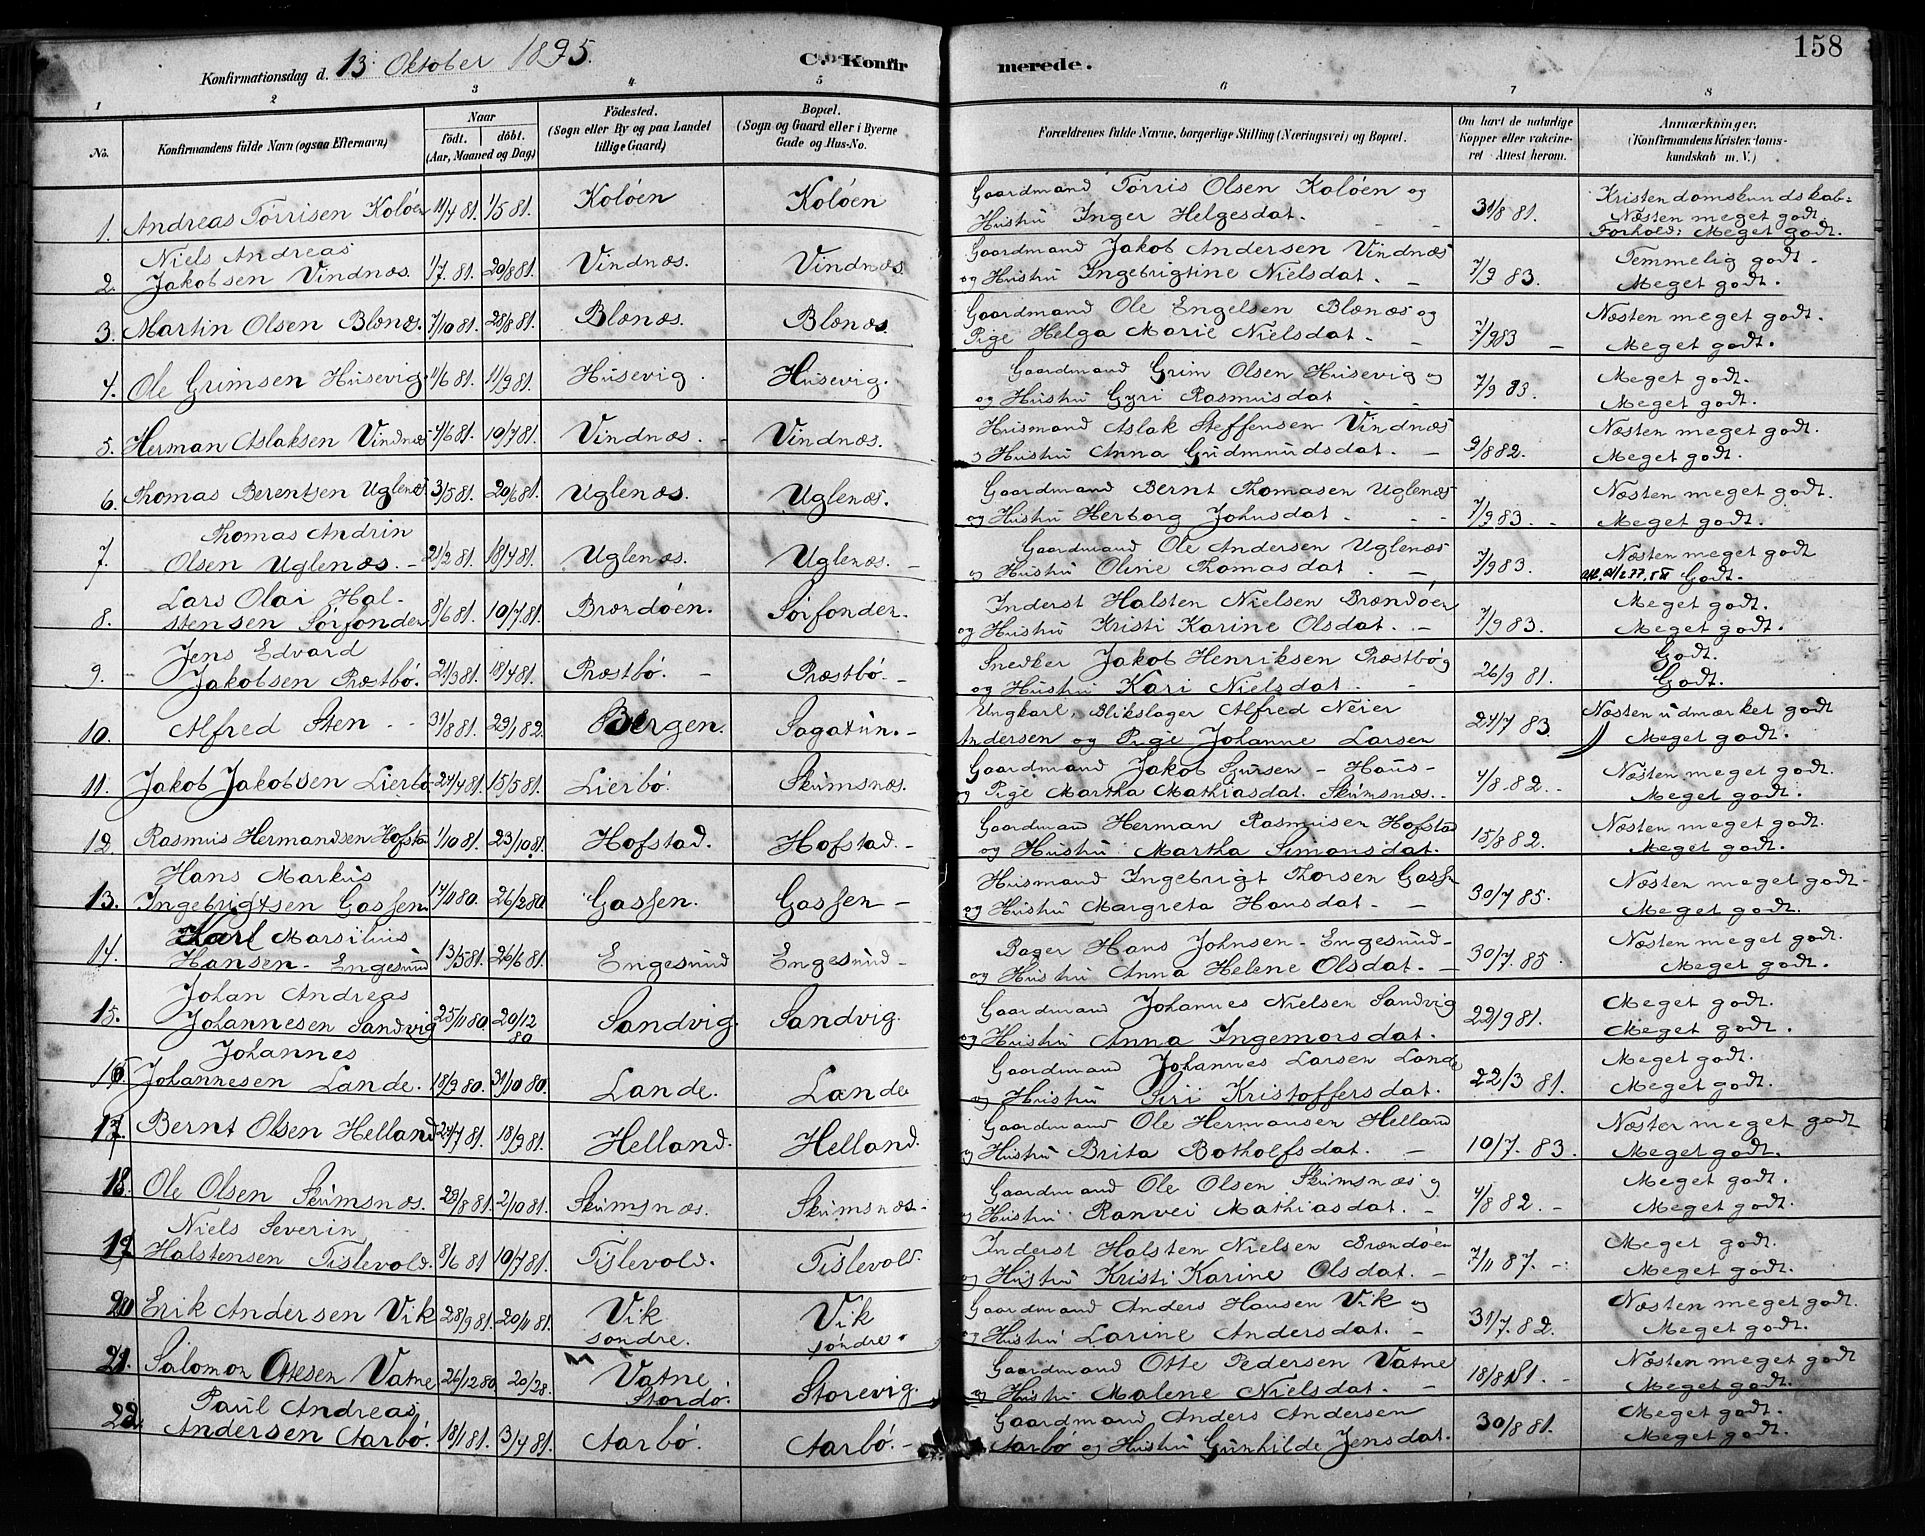 158
Konfirmationsdag d. 13 Oktober 1895.
C. Konfir merede.
1 2 3 4 5 6 7 8
No.
Konfirmandens fulde Navn (ogsaa Efternavn)
Naar
födt. döbt.
(Aar, Maaned og Dag)
Födested.
(Sogn eller By og paa Landet
tillige Gaard)
Bopæl.
(Sogn og Gaard eller i Byerne
Gade og Hus-No.
Forældrenes fulde Navne, borgerlige Stilling (Næringsvei) og Bopæl.
Om havt de naturlige
Kopper eller vakcine-
ret Attest herom.
Anmærkninger,
(Konfirmandens Kristendoms-
kundskab m. V.)
1. Andreas Törrisen Kolöen 11/4 81. 1/5 81. Kolöen Kolöen Gaardmand Törris Olsen Kolöen og
Hustru Inger Helgesdat. 31/8 81. Kristendomskundskab:
Næsten meget godt.
Forhold: Meget godt.
2. Niels Andreas
Jakobsen Vindnæs. 1/7 81. 20/8 81. Vindnæs. Vindnæs Gaardmand Jakob Andersen Vindnæs
og Hustru Ingebrigtine Nielsdat. 7/9 83. Temmelig godt.
Meget godt.
3. Martin Olsen Blænæs. 7/10 81. 28/8 81. Blænæs. Blænæs Gaardmand Ole Engelsen Blænæs og
Pige Helga Marie Nielsdat. 7/9 83 Næsten meget godt.
Meget godt.
4. Ole Grimsen Husevig 11/6 81. 11/9 81. Husevig. Husevig. Gaardmand Grim Olsen Husevig og
og Hustru Gyri Rasmusdat 7/9 83. Meget godt.
Meget godt.
5. Herman Aslaksen Vindnæs 4/6 81. 10/7 81. Vindnæs. Vindnæs. Husmand Aslak Steffensen Vindnæs
og Hustru Anna Gudmundsdat. 9/8 82. Næsten meget godt.
Meget godt.
6. Thomas Berentsen Uglenæs 3/5 81. 20/6 81. Uglenæs. Uglenæs. Gaardmand Bernt Thomasen Uglenæs
og Hustru Herborg Johnsdat. 7/9 83. Næsten meget godt.
Meget godt.
7. Thomas Andrin
Olsen Uglenæs. 21/2 81. 18/4 81. Uglenæs. Uglenæs. Gaardmand Ole Andersen Uglenæs
og Hustru Oline Thomasdat 7/9 83. Næsten meget godt
Godt.
8. Lars Olai Hal-
stensen Sörfonden 8/6 81. 10/7 81. Brændöen. Sörfonden. Inderst Halsten Nielsen Brændöen
og Hustru Kristi Karine Olsdat. 7/9 83. Meget godt.
Meget godt.
9. Jens Edvard
Jakobsen Præstbö. 21/3 81. 18/4 81. Præstbö. Præstbö. Snedker Jakob Henriksen Præstbö
og Hustru Kari Nielsdat. 26/9 81. Godt.
Godt.
10. Alfred Sten 31/8 81. 29/1 82. Bergen. Sagatun. Ungkarl, Blikslager Alfred Neier
Andersen og Pige Johanne Larsen 24/7 83. Næsten udmærket godt
Meget godt.
11. Jakob Jakobsen Lierbö 24/4 81. 15/5 81. Lierbö. Skumsnæs. Gaardmand Jakob Sjursen - Haus -
og Pige Martha Mathiasdat. Skumsnæs. 4/8 82. Næsten meget godt.
Meget godt.
12. Rasmus Hermandsen Hofsta 1/10 81. 23/10 81. Hofstad. Hofstad. Gaardmand Herman Rasmusen Hofstad
og Hustru Martha Simonsdat. 15/8 82. Næsten meget godt.
Meget godt.
13. Hans Markus
Ingebrigtsen Gassen 14/11 80. 26/12 80 Gassen. Gassen Husmand Ingebrigt Thorsen Gassen
og Hustru Margreta Hansdat. 30/7 85. Næsten meget godt.
Meget godt.
14. Karl Marsilius
Hansen - Engesund 13/5 81. 26/6 81. Engesund Engesund Bager Hans Johnsen - Engesund
og Hustru Anna Helene Olsdat. 30/7. 85. Næsten meget godt.
Meget godt.
15. Johan Andreas
Johannesen Sandvig 25/11 80. 20/12 80 Sandvig. Sandvig. Gaardmand Johannes Nielsen Sandvig
og Hustru Anna Ingemorsdat. 22/9 81. Meget godt.
Meget godt.
16. Johannes
Johannesen Lande. 18/9 80. 31/10 80. Lande. Lande Gaardmand Johannes Larsen Lande
og Hustru Siri Kristoffersdat. 22/3 81. Meget godt.
Meget godt.
17. Bernt Olsen Helland 24/7 81. 18/9 81. Helland. Helland. Gaardmand Ole Hermansen Helland
og Hustru Brita Botholfsdat. 10/7. 83. Næsten meget godt
Meget godt.
18. Ole Olsen Skumsnæs. 29/8 81. 2/10 81. Skumsnæs. Skumsnæs. Gaardmand Ole Olsen Skumsnæs og
og Hustru Ranvei Mathiasdat. 4/8 82. Meget godt.
Meget godt.
19. Niels Severin
Halstensen Tislevold. 8/6 81 10/7 81. Tislevold. Tislevold. Inderst Halsten Nielsen Brændöen
og Hustru Kristi Karine Olsdat. 7/11 87. Meget godt.
Meget godt.
20 Erik Andersen Vik 28/9 81. 20/11 81. Vik
söndre. Vik
söndre Gaardmand Anders Hansen Vik og
og Hustru Larine Andersdat. 31/7. 82. Næsten meget godt.
Meget godt.
21. Salomon Ottesen Vatne 26/12 80 20/28. Vatne
Stordö. Storevig. Gaardmand Otte Pedersen Vatne
og Hustru Malene Nielsdat. 18/8 81. Næsten meget godt
Meget godt.
22. Paul Andreas
Andersen Aarbö. 18/1 81. 3/4 81. Aarbö. Aarbö. Gaardmand Anders Andersen
Aarbö og Hustru Gunhilde Jensdat. 30/8 81. Meget godt.
Meget godt.